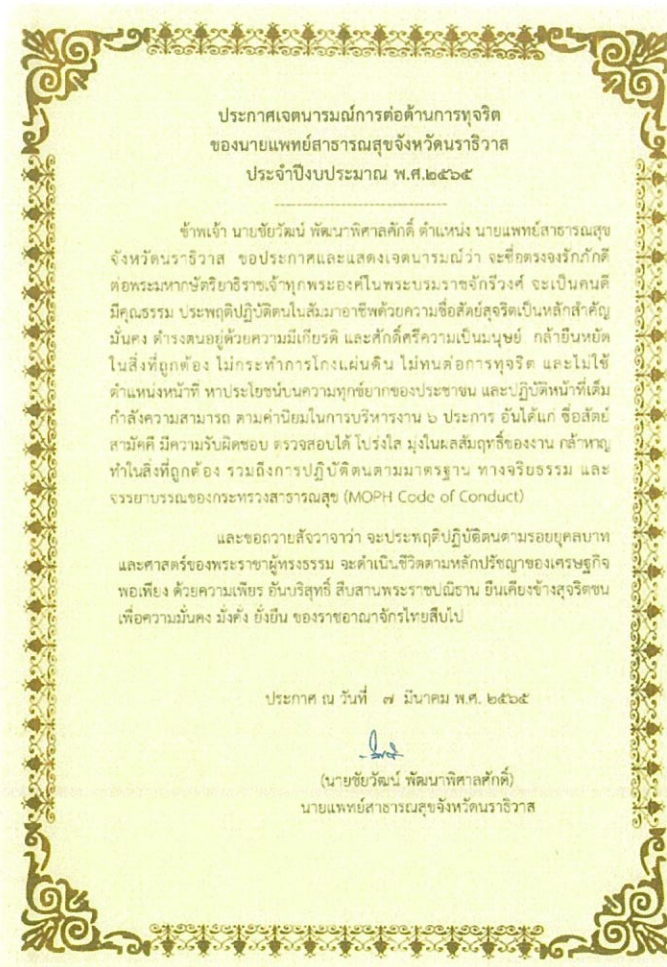 ประกาศเจตนารมณ์การต่อต้านการทุจริต
ของนายแพทย์สาธารณสุขจังหวัดนราธิวาส
ประจำปีงบประมาณ พ.ศ.๒๕๖๕
ข้าพเจ้า นายชัยวัฒน์ พัฒนาพิศาลศักดิ์ ตำแหน่ง นายแพทย์สาธารณสุข
จังหวัดนราธิวาส ขอประกาศและแสดงเจตนารมณ์ว่า จะซื่อตรงจงรักภักดี
ต่อพระมหากษัตริยาธิราชเจ้าทุกพระองค์ในพระบรมราชจักรีวงศ์ จะเป็นคนดี
มีคุณธรรม ประพฤติปฏิบัติตนในสัมมาอาชีพด้วยความซื่อสัตย์สุจริตเป็นหลักสำคัญ
มั่นคง ดำรงตนอยู่ด้วยความมีเกียรติ และศักดิ์ศรีความเป็นมนุษย์ กล้ายืนหยัด
ในสิ่งที่ถูกต้อง ไม่กระทำการโกงแผ่นดิน ไม่ทนต่อการทุจริต และไม่ใช้
ตำแหน่งหน้าที่ หาประโยชน์บนความทุกข์ยากของประชาชน และปฏิบัติหน้าที่เต็ม
กำลังความสามารถ ตามค่านิยมในการบริหารงาน ๖ ประการ อันได้แก่ ซื่อสัตย์
สามัคคี มีความรับผิดชอบ ตรวจสอบได้ โปร่งใส มุ่งในผลสัมฤทธิ์ของงาน กล้าหาญ
ทำในสิ่งที่ถูกต้อง รวมถึงการปฏิบัติตนตามมาตรฐาน ทางจริยธรรม และ
จรรยาบรรณของกระทรวงสาธารณสุข (MOPH Code of Conduct)
และขอถวายสัจวาจาว่า จะประพฤติปฏิบัติตนตามรอยยุคลบาท
และศาสตร์ของพระราชาผู้ทรงธรรม จะดำเนินชีวิตตามหลักปรัชญาของเศรษฐกิจ
พอเพียง ด้วยความเพียร อันบริสุทธิ์ สืบสานพระราชปณิธาน ยืนเคียงข้างสุจริตชน
เพื่อความมั่นคง มั่งคั่ง ยั่งยืน ของราชอาณาจักรไทยสืบไป
ประกาศ ณ วันที่ ๗ มีนาคม พ.ศ. ๒๕๖๕
(นายชัยวัฒน์ พัฒนาพิศาลศักดิ์)
นายแพทย์สาธารณสุขจังหวัดนราธิวาส